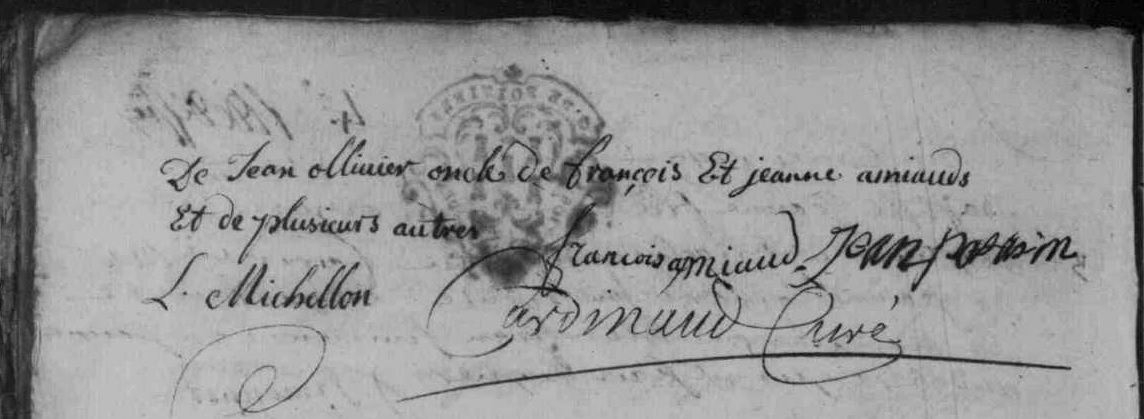 De Jean ollivier oncle de françois Et jeanne amiauds
Et de plusieurs autres
françois amiaud Jean
L. Michellon
Cardinaud Curé